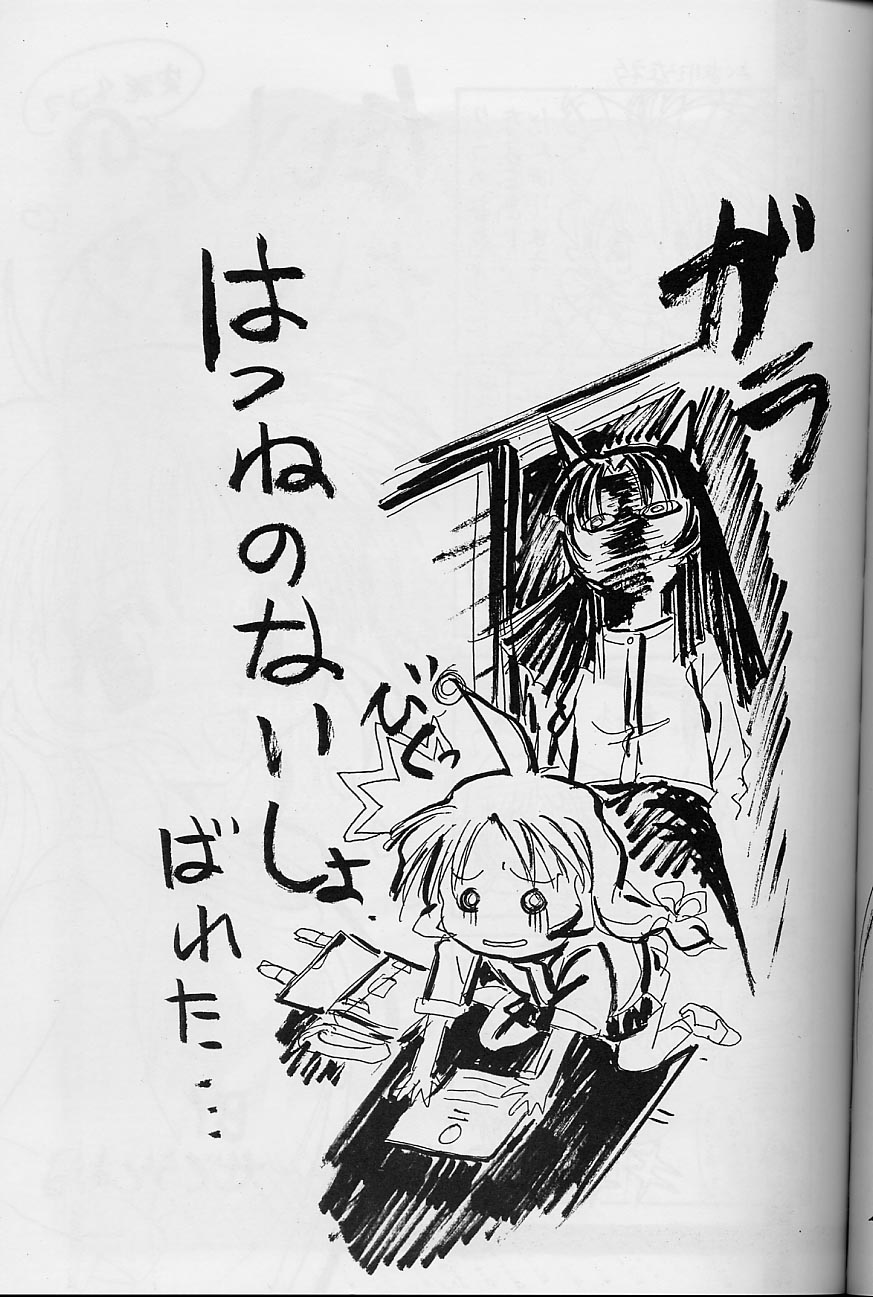 ガラ
びくっ
はつねのないしょ
ばれた…